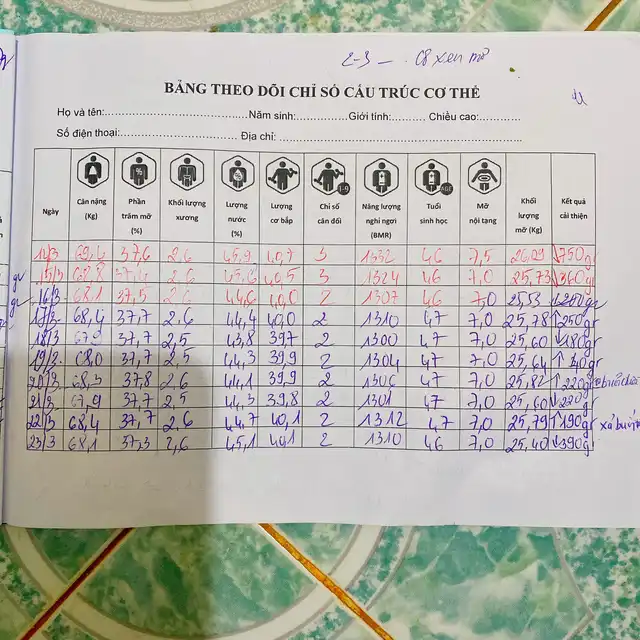 2-3 –
BẢNG THEO DÕI CHỈ SỐ CẤU TRÚC CƠ THỂ
Họ và tên: Năm sinh: Giới tính: Chiều cao:
Số điện thoại: Địa chỉ:
Ngày Cân nặng (Kg) Phần trăm mỡ (%) Khối lượng xương Lượng nước (%) Lượng cơ bắp Chỉ số cân đối Năng lượng nghỉ ngơi (BMR) Tuổi sinh học Mỡ nội tạng Khối lượng mỡ (Kg) Kết quả cải thiện
14/3 69,4 37,6 2,6 45,9 40,7 3 1332 46 7,5 26,09 ↓750g
15/3 68,8 37,4 2,6 45,6 40,5 3 1324 46 7,0 25,73 ↓360g
16/3 68,1 37,5 2,6 44,6 40,0 2 1307 46 7,0 25,53
17/3 68,4 37,7 2,6 44,4 40,0 2 1310 47 7,0 25,78 ↑250gr
18/3 67,9 37,7 2,5 43,8 39,7 2 1300 47 7,0 25,60 ↓180gr
19/3 68,0 37,7 2,5 44,3 39,9 2 1304 47 7,0 25,64 ↑40gr
20/3 68,3 37,8 2,6 44,1 39,9 2 1306 47 7,0 25,82 ↑220g
21/3 67,9 37,7 2,5 44,3 39,8 2 1301 47 7,0 25,60 ↓220g
22/3 68,4 37,7 2,6 44,7 40,1 2 1312 47 7,0 25,79 ↑190gr
23/3 68,1 37,3 2,6 45,1 40,1 2 1310 46 7,0 25,40 ↓390g